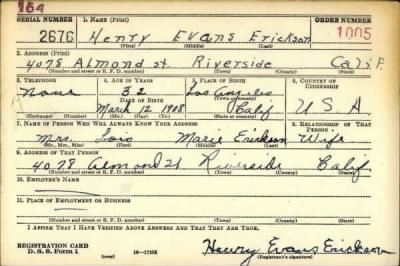 164
SERIAL NUMBER 1. NAME (Print) ORDER NUMBER
2676 Henry Evans Erickson 1005
(First) (Middle) (Last)
2. ADDRESS (Print)
4078 Almond St. Riverside Calif.
(Number and street or R. F. D. number) (Town) (County) (State)
3. TELEPHONE 4. AGE IN YEARS 5. PLACE OF BIRTH 6. COUNTRY OF CITIZENSHIP
None 32 Los Angeles
DATE OF BIRTH (Town or county)
March 12 1908 Calif U S A
(Exchange) (Number) (Mo.) (Day) (Yr.) (State or country)
7. NAME OF PERSON WHO WILL ALWAYS KNOW YOUR ADDRESS 8. RELATIONSHIP OF THAT PERSON
Mrs. Lois Marie Erickson Wife
(Mr., Mrs., Miss) (First) (Middle) (Last)
9. ADDRESS OF THAT PERSON
4078 Almond St Riverside Calif.
(Number and street or R. F. D. number) (Town) (County) (State)
10. EMPLOYER'S NAME
11. PLACE OF EMPLOYMENT OR BUSINESS
(Number and street or R. F. D. number) (Town) (County) (State)
I AFFIRM THAT I HAVE VERIFIED ABOVE ANSWERS AND THAT THEY ARE TRUE.
REGISTRATION CARD
D. S. S. Form 1 (over) 16—17105 Henry Evans Erickson
(Registrant's signature)